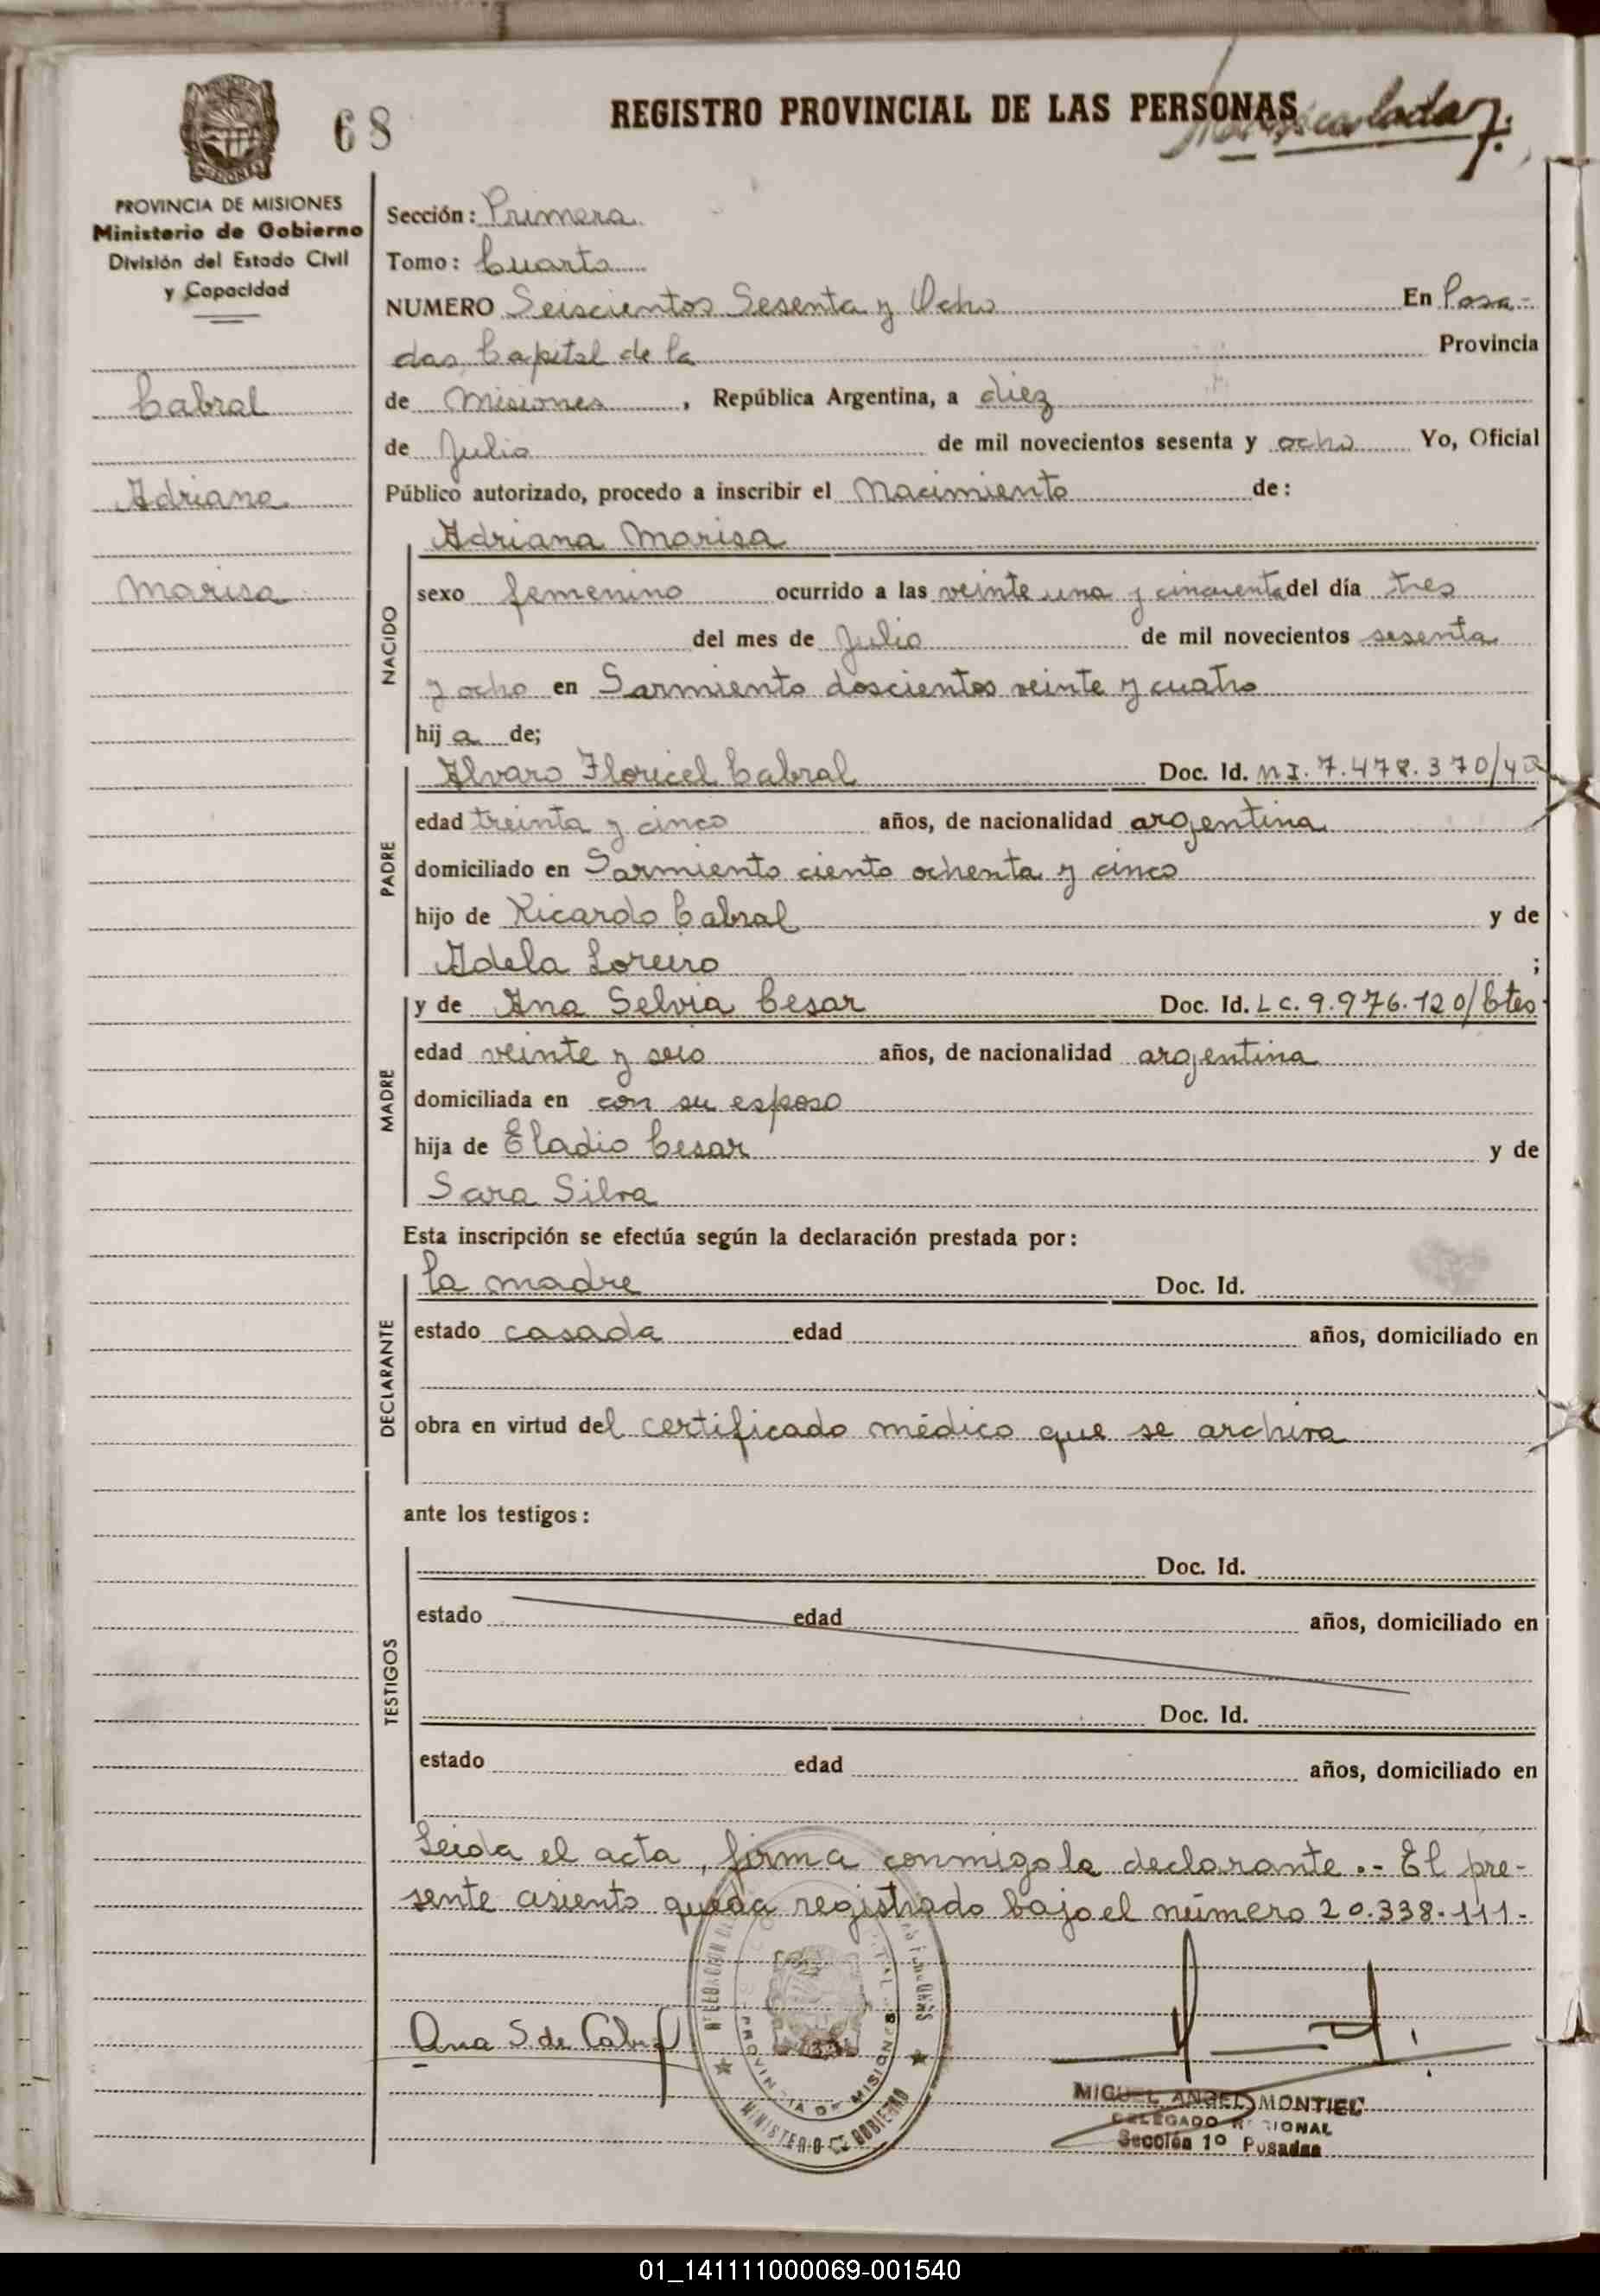 68
REGISTRO PROVINCIAL DE LAS PERSONAS
PROVINCIA DE MISIONES
Ministerio de Gobierno
División del Estado Civil
y Capacidad
Cabral
Adriana
Marisa
Sección: Primera
Tomo: Cuarto
NUMERO Seiscientos Sesenta y Ocho En Posa-
das Capital de la Provincia
de Misiones, República Argentina, a diez
de Julio de mil novecientos sesenta y ocho Yo, Oficial
Público autorizado, procedo a inscribir el Nacimiento de:
NACIDO
Adriana Marisa
sexo femenino ocurrido a las veinte una y cincuenta del día tres
del mes de Julio de mil novecientos sesenta
y ocho en Sarmiento doscientos veinte y cuatro
hija de;
PADRE
Alvaro Floricel Cabral Doc. Id. M I. 7.478.370/
edad treinta y cinco años, de nacionalidad argentina
domiciliado en Sarmiento ciento ochenta y cinco
hijo de Ricardo Cabral y de
Adela Loreiro ;
MADRE
y de Ana Selvia Cesar Doc. Id. L C. 9.976.120/Ctes
edad veinte y seis años, de nacionalidad argentina
domiciliada en con su esposo
hija de Eladio Cesar y de
Sara Silva
Esta inscripción se efectúa según la declaración prestada por:
DECLARANTE
la madre Doc. Id.
estado casada edad años, domiciliado en
obra en virtud del certificado médico que se archiva
ante los testigos:
TESTIGOS
Doc. Id.
estado edad años, domiciliado en
Doc. Id.
estado edad años, domiciliado en
Leida el acta, firma conmigo la declarante.- El pre-
sente asiento queda registrado bajo el número 20.338.111-
Ana S. de Cabral
PROVINCIA DE MISIONES
MINISTERIO DE GOBIERNO
MIGUEL ANGEL MONTIEL
DELEGADO REGIONAL
Sección 1º Posadas
01_141111000069-001540